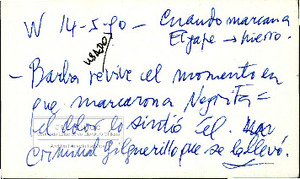 W 14-5-90 - Cuando marcan a
Etjape → hierro.
USADO
- Barba revive el momento en
que marcaron a Negrita =
el dolor lo sintió él.
criminal gilguerillo que se la llevó.